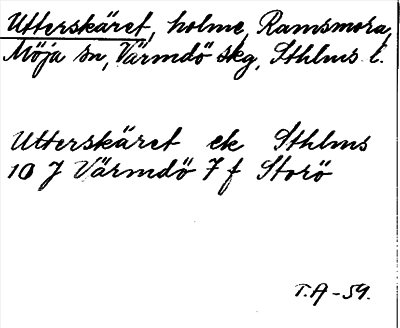 Utterskäret, holme, Ramsmora,
Möja sn, Värmdö skg, Sthlms l.
Utterskäret ek Sthlms
10 J Värmdö 7 f Storö
T.A-59.